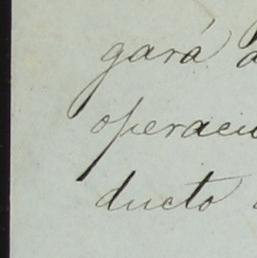 gará
operaci
ducto